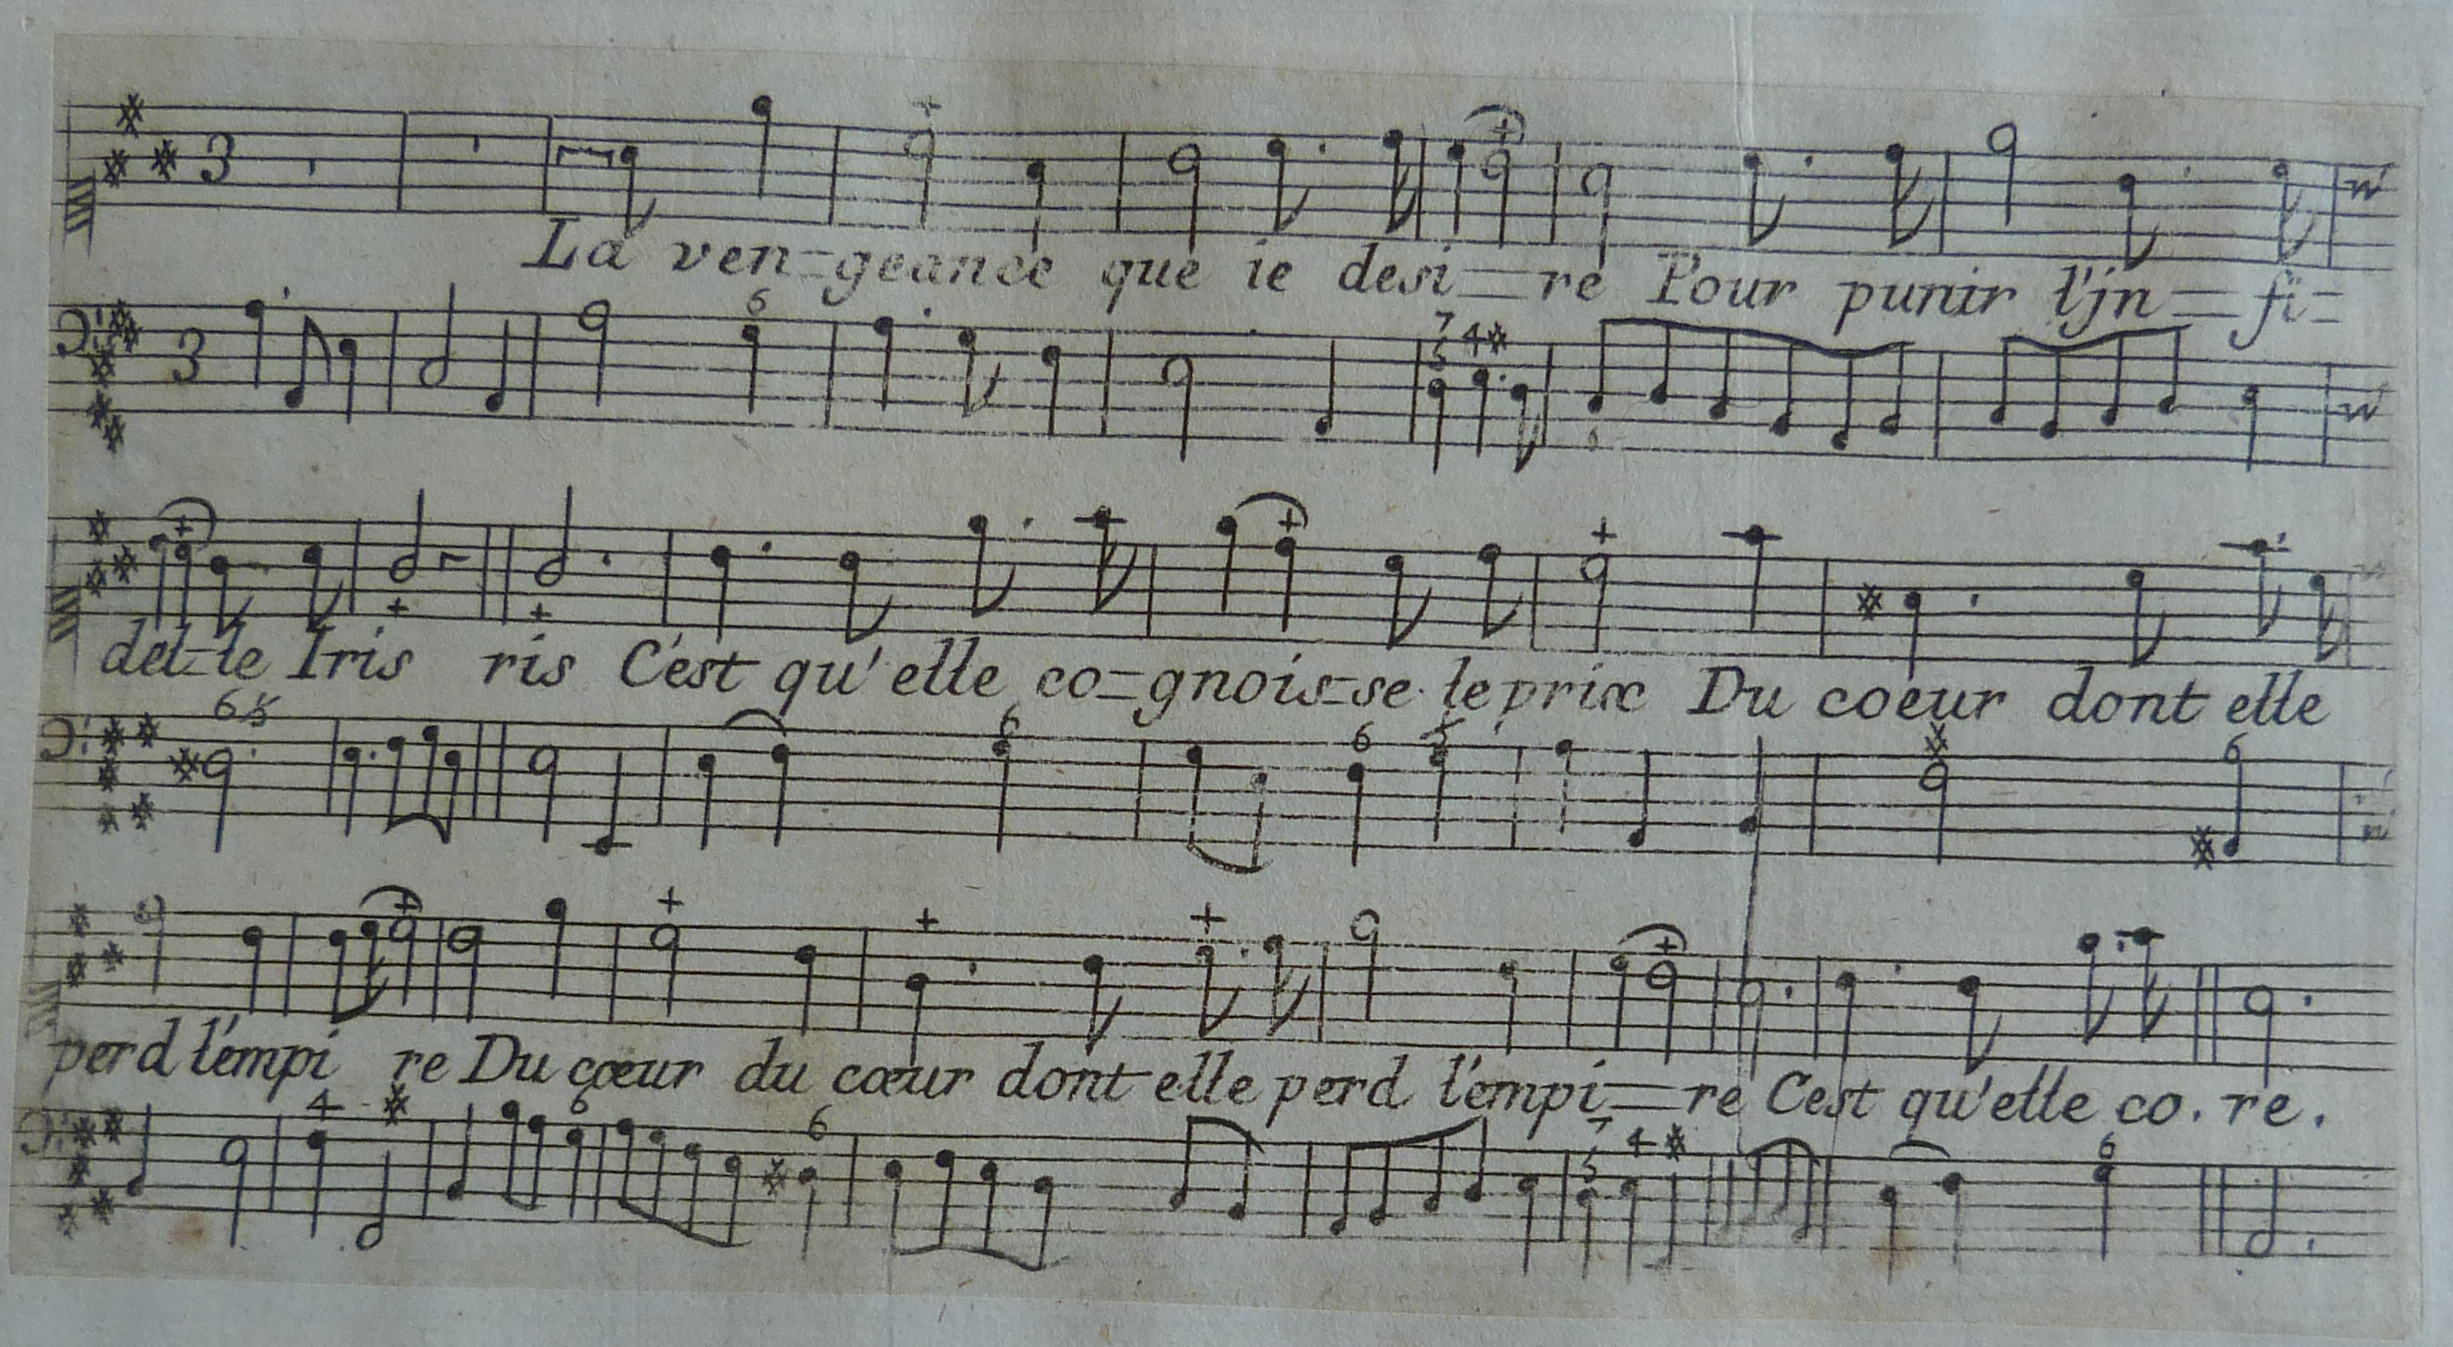 3
La ven=geance que ie desi=re Pour punir l'jn=fi=
6 7 5 4
3
del=le Iris ris C'est qu'elle co=gnois=se le prix Du coeur dont elle
6 5 6 6 5 6
perd l'empi re Du cœur du cœur dont elle perd l'empi=re C'est qu'elle co. re.
4 6 6 7 5 4 6